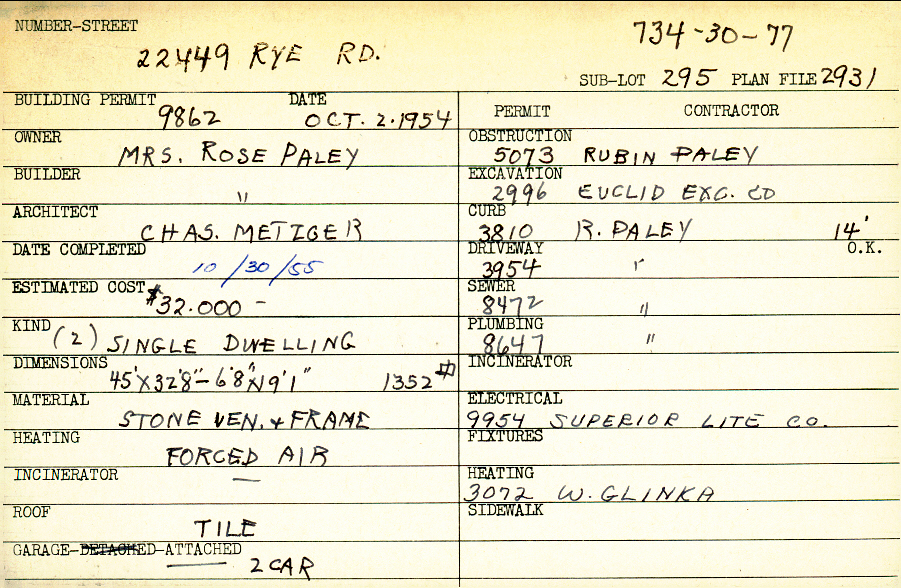 NUMBER-STREET
734-30-77
22449 RYE RD.
SUB-LOT 295 PLAN FILE 2931
BUILDING PERMIT DATE
9862 OCT. 2.1954
OWNER
MRS. ROSE PALEY
BUILDER
"
ARCHITECT
CHAS. METZGER
DATE COMPLETED
10/30/55
ESTIMATED COST
$32.000 -
KIND
(2) SINGLE DWELLING
DIMENSIONS
45'X32'8"-6'8"X19'1" 1352 #
MATERIAL
STONE VEN. & FRAME
HEATING
FORCED AIR
INCINERATOR
—
ROOF
TILE
GARAGE-DETACHED-ATTACHED
2 CAR
PERMIT CONTRACTOR
OBSTRUCTION
5073 RUBIN PALEY
EXCAVATION
2996 EUCLID EXC. CO
CURB
3810 R. PALEY 14'
DRIVEWAY O.K.
3954 "
SEWER
8472 "
PLUMBING
8647 "
INCINERATOR
ELECTRICAL
9954 SUPERIOR LITE CO.
FIXTURES
HEATING
3072 W. GLINKA
SIDEWALK